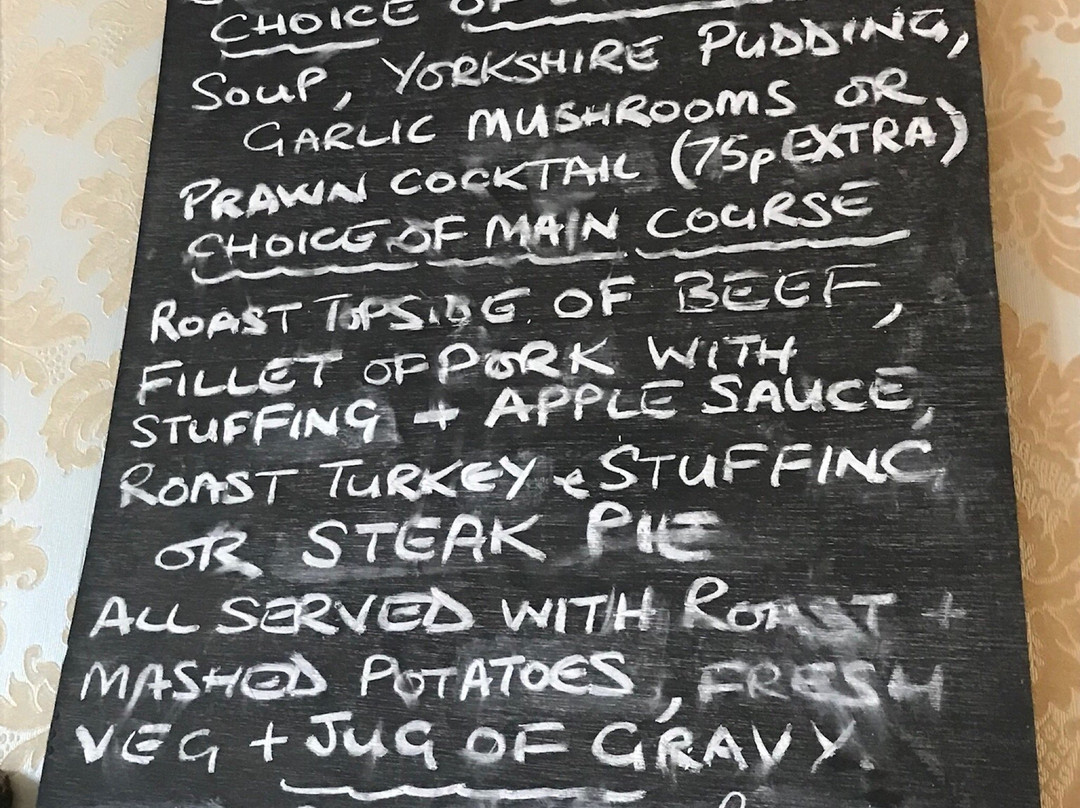 CHOICE OF
SOUP, YORKSHIRE PUDDING,
GARLIC MUSHROOMS OR
PRAWN COCKTAIL (75p EXTRA)
CHOICE OF MAIN COURSE
ROAST TOPSIDE OF BEEF,
FILLET OF PORK WITH
STUFFING + APPLE SAUCE,
ROAST TURKEY & STUFFING
OR STEAK PIE
ALL SERVED WITH ROAST +
MASHED POTATOES, FRESH
VEG + JUG OF GRAVY.